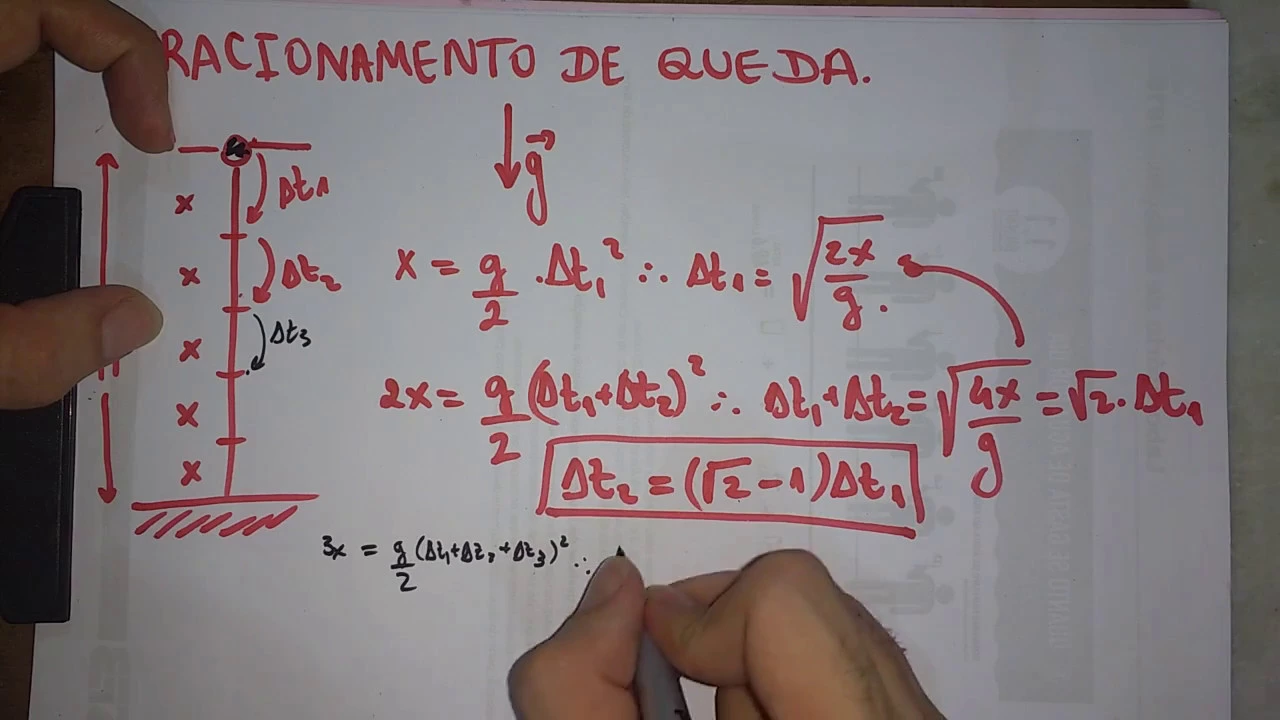 RACIONAMENTO DE QUEDA.
g⃗
x Δt₁
x Δt₂
x Δt₃
x
x
x = g/2 . Δt₁² ∴ Δt₁ = √(2x/g).
2x = g/2 (Δt₁+Δt₂)² ∴ Δt₁+Δt₂ = √(4x/g) = √2 . Δt₁
Δt₂ = (√2 - 1)Δt₁
3x = g/2 (Δt₁+Δt₂+Δt₃)² ∴